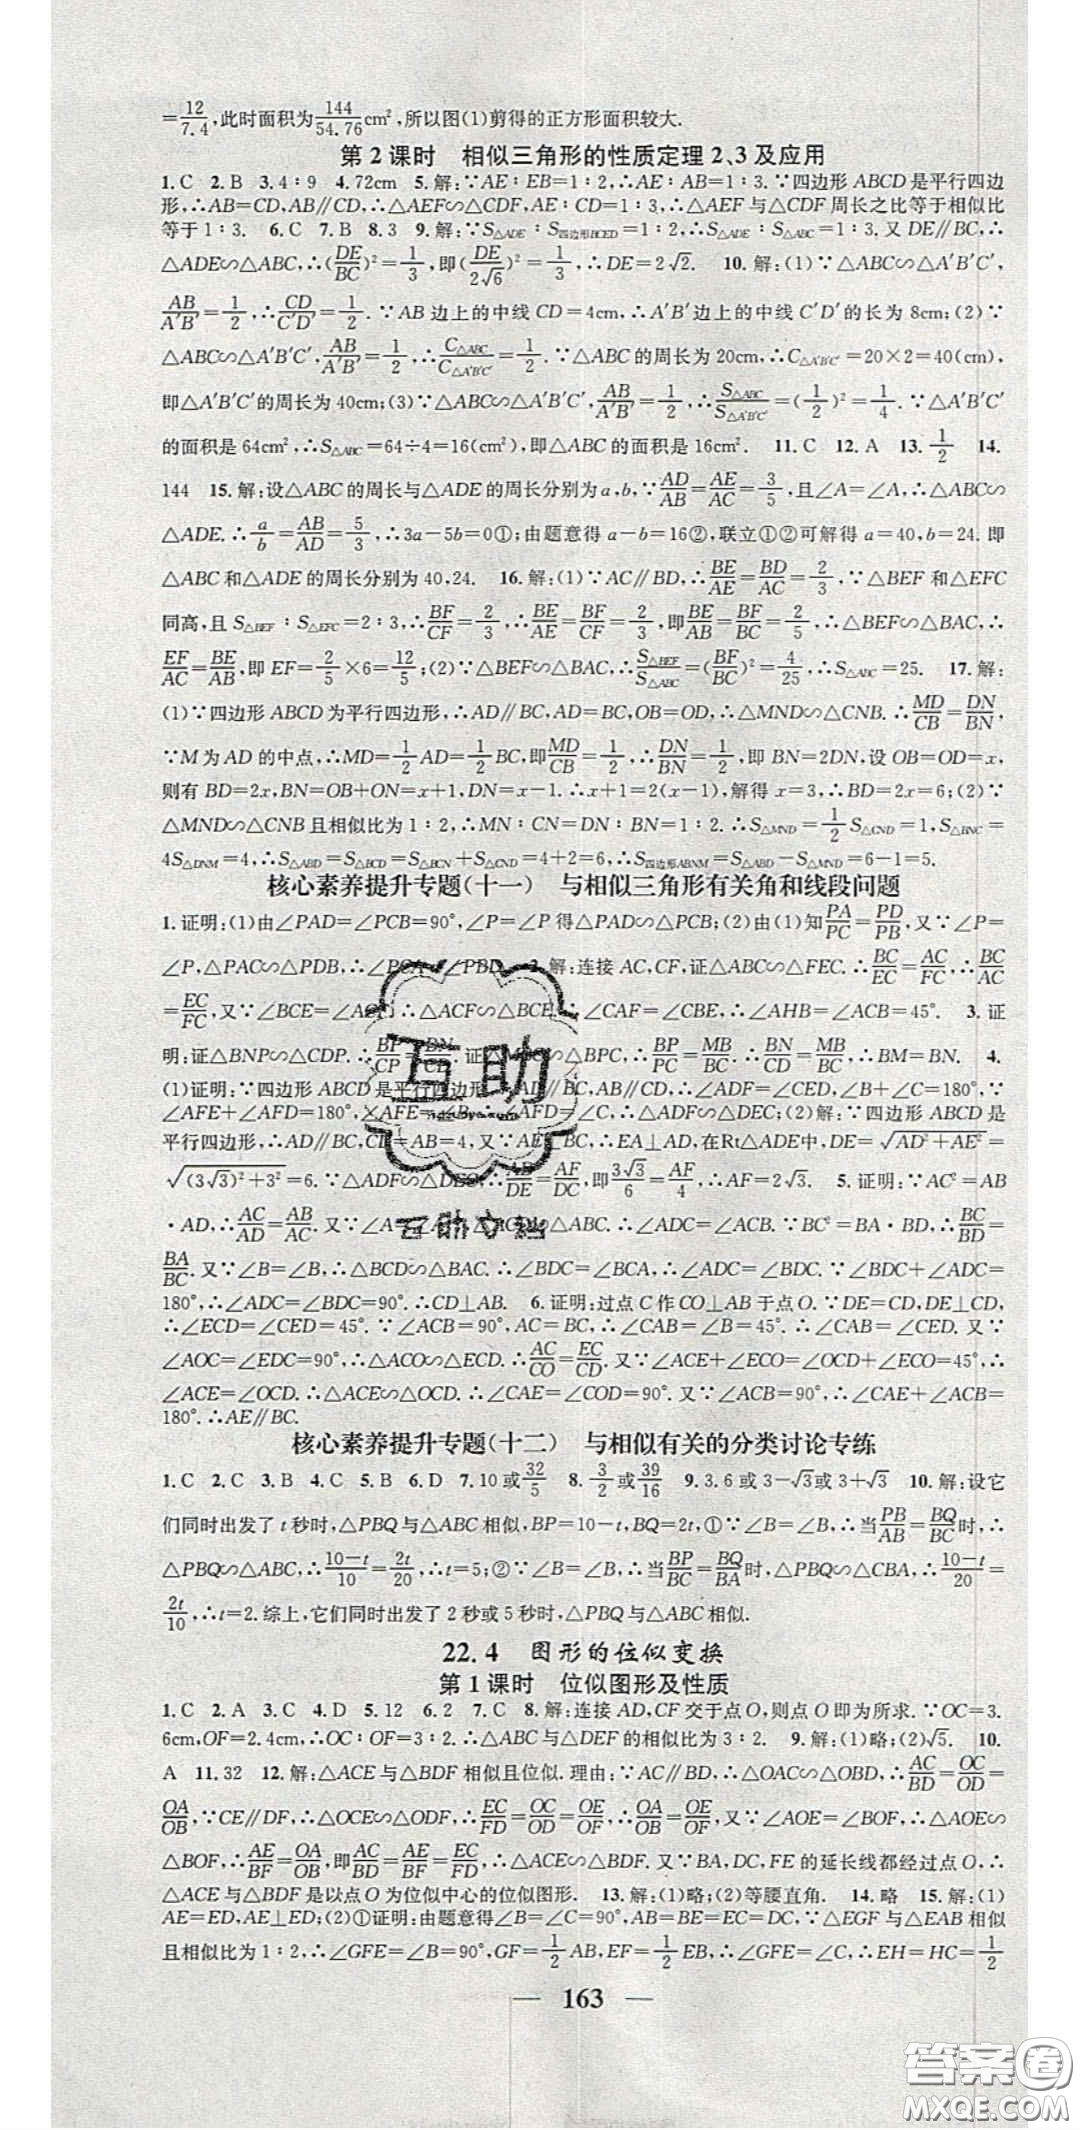 =12/7.4,此时面积为144/54.76cm²,所以图(1)剪得的正方形面积较大.
第2课时 相似三角形的性质定理2、3及应用
1.C 2.B 3.4∶9 4.72cm 5.解:∵AE∶EB=1∶2,∴AE∶AB=1∶3.∵四边形ABCD是平行四边
形,∴AB=CD,AB∥CD,∴△AEF∽△CDF,AE∶CD=1∶3,∴△AEF与△CDF周长之比等于相似比
等于1∶3. 6.C 7.B 8.3 9.解:∵S△ADE∶S四边形BCED=1∶2,∴S△ADE∶S△ABC=1∶3.又DE∥BC,∴
△ADE∽△ABC,∴(DE/BC)²=1/3,即(DE/2√6)²=1/3,∴DE=2√2. 10.解:(1)∵△ABC∽△A′B′C′,
AB/A′B′=1/2,∴CD/C′D′=1/2.∵AB边上的中线CD=4cm,∴A′B′边上的中线C′D′的长为8cm;(2)∵
△ABC∽△A′B′C′,AB/A′B′=1/2,∴C△ABC/C△A′B′C′=1/2.∵△ABC的周长为20cm,∴C△A′B′C′=20×2=40(cm),
即△A′B′C′的周长为40cm;(3)∵△ABC∽△A′B′C′,AB/A′B′=1/2,∴S△ABC/S△A′B′C′=(1/2)²=1/4.∵△A′B′C′
的面积是64cm²,∴S△ABC=64÷4=16(cm²),即△ABC的面积是16cm². 11.C 12.A 13.1/2 14.
144 15.解:设△ABC的周长与△ADE的周长分别为a,b,∵AD/AB=AE/AC=3/5,且∠A=∠A,∴△ABC∽
△ADE.∴a/b=AB/AD=5/3,∴3a-5b=0①;由题意得a-b=16②,联立①②可解得a=40,b=24.即
△ABC和△ADE的周长分别为40,24. 16.解:(1)∵AC∥BD,∴BE/AE=BD/AC=2/3,∵△BEF和△EFC
同高,且S△BEF∶S△EFC=2∶3,∴BF/CF=2/3,∴BE/AE=BF/CF=2/3,即BE/AB=BF/BC=2/5,∴△BEF∽△BAC,∴
EF/AC=BE/AB,即EF=2/5×6=12/5;(2)∵△BEF∽△BAC,∴S△BEF/S△ABC=(BF/BC)²=4/25,∴S△ABC=25. 17.解:
(1)∵四边形ABCD为平行四边形,∴AD∥BC,AD=BC,OB=OD,∴△MND∽△CNB.∴MD/CB=DN/BN,
∵M为AD的中点,∴MD=1/2AD=1/2BC,即MD/CB=1/2,∴DN/BN=1/2,即BN=2DN,设OB=OD=x,
则有BD=2x,BN=OB+ON=x+1,DN=x-1.∴x+1=2(x-1),解得x=3,∴BD=2x=6;(2)∵
△MND∽△CNB且相似比为1∶2,∴MN∶CN=DN∶BN=1∶2.∴S△MND=1/2S△CND=1,S△BNC=
4S△DNM=4,∴S△ABD=S△BCD=S△BCN+S△CND=4+2=6,∴S四边形ABNM=S△ABD-S△MND=6-1=5.
核心素养提升专题(十一) 与相似三角形有关角和线段问题
1.证明:(1)由∠PAD=∠PCB=90°,∠P=∠P得△PAD∽△PCB;(2)由(1)知PA/PC=PD/PB,又∵∠P=
∠P,△PAC∽△PDB,∴∠PCA=∠PBD. 2.解:连接AC,CF,证△ABC∽△FEC.∴BC/EC=AC/FC,∴BC/AC
=EC/FC,又∵∠BCE=∠ACF ∴△ACF∽△BCE,∴∠CAF=∠CBE,∴∠AHB=∠ACB=45°. 3.证
明:证△BNP∽△CDP.∴BP/CP=BN/CD.证 ∽△BPC,∴BP/PC=MB/BC.∴BN/CD=MB/BC,∴BM=BN. 4.
(1)证明:∵四边形ABCD是平行四边形,∴AD∥BC,AB∥CD,∴∠ADF=∠CED,∠B+∠C=180°.∵
∠AFE+∠AFD=180°,∠AFE=∠B,∴∠AFD=∠C,∴△ADF∽△DEC;(2)解:∵四边形ABCD是
平行四边形,∴AD∥BC,CD=AB=4,又∵AE⊥BC,∴EA⊥AD,在Rt△ADE中,DE=√AD²+AE²=
√(3√3)²+3²=6.∵△ADF∽△DEC,∴AD/DE=AF/DC,即3√3/6=AF/4,∴AF=2√3. 5.证明:∵AC²=AB
·AD,∴AC/AD=AB/AC.又∵∠A=∠A, ∽△ABC.∴∠ADC=∠ACB.∵BC²=BA·BD,∴BC/BD=
BA/BC.又∵∠B=∠B,∴△BCD∽△BAC.∴∠BDC=∠BCA,∴∠ADC=∠BDC.∵∠BDC+∠ADC=
180°,∴∠ADC=∠BDC=90°.∴CD⊥AB. 6.证明:过点C作CO⊥AB于点O.∵DE=CD,DE⊥CD,
∴∠ECD=∠CED=45°.∵∠ACB=90°,AC=BC,∴∠CAB=∠B=45°.∴∠CAB=∠CED.又∵
∠AOC=∠EDC=90°,∴△ACO∽△ECD.∴AC/CO=EC/CD.又∵∠ACE+∠ECO=∠OCD+∠ECO=45°,∴
∠ACE=∠OCD.∴△ACE∽△OCD.∴∠CAE=∠COD=90°.又∵∠ACB=90°,∴∠CAE+∠ACB=
180°.∴AE∥BC.
核心素养提升专题(十二) 与相似有关的分类讨论专练
1.C 2.C 3.B 4.C 5.B 6.D 7.10或32/5 8.3/2或39/16 9.3.6或3-√3或3+√3 10.解:设它
们同时出发了t秒时,△PBQ与△ABC相似,BP=10-t,BQ=2t,①∵∠B=∠B,∴当PB/AB=BQ/BC时,∴
△PBQ∽△ABC,∴10-t/10=2t/20,∴t=5;②∵∠B=∠B,∴当BP/BC=BQ/BA时,△PBQ∽△CBA,∴10-t/20=
2t/10,∴t=2.综上,它们同时出发了2秒或5秒时,△PBQ与△ABC相似.
22.4 图形的位似变换
第1课时 位似图形及性质
1.C 2.A 3.C 4.D 5.12 6.2 7.C 8.解:连接AD,CF交于点O,则点O即为所求.∵OC=3.
6cm,OF=2.4cm,∴OC∶OF=3∶2,∴△ABC与△DEF的相似比为3∶2. 9.解:(1)略;(2)√5. 10.
A 11.32 12.解:△ACE与△BDF相似且位似.理由:∵AC∥BD,∴△OAC∽△OBD,∴AC/BD=OC/OD=
OA/OB,∵CE∥DF,∴△OCE∽△ODF,∴EC/FD=OC/OD=OE/OF,∴OA/OB=OE/OF,又∵∠AOE=∠BOF,∴△AOE∽
△BOF,∴AE/BF=OA/OB,即AC/BD=AE/BF=EC/FD,∴△ACE∽△BDF.又∵BA,DC,FE的延长线都经过点O,∴
△ACE与△BDF是以点O为位似中心的位似图形. 13.解:(1)略;(2)等腰直角. 14.略 15.解:(1)
AE=ED,AE⊥ED;(2)①证明:由题意得∠B=∠C=90°,AB=BE=EC=DC,∵△EGF与△EAB相似
且相似比为1∶2,∴∠GFE=∠B=90°,GF=1/2AB,EF=1/2EB,∴∠GFE=∠C,∴EH=HC=1/2
163
互助
答案圈
MXQE.COM